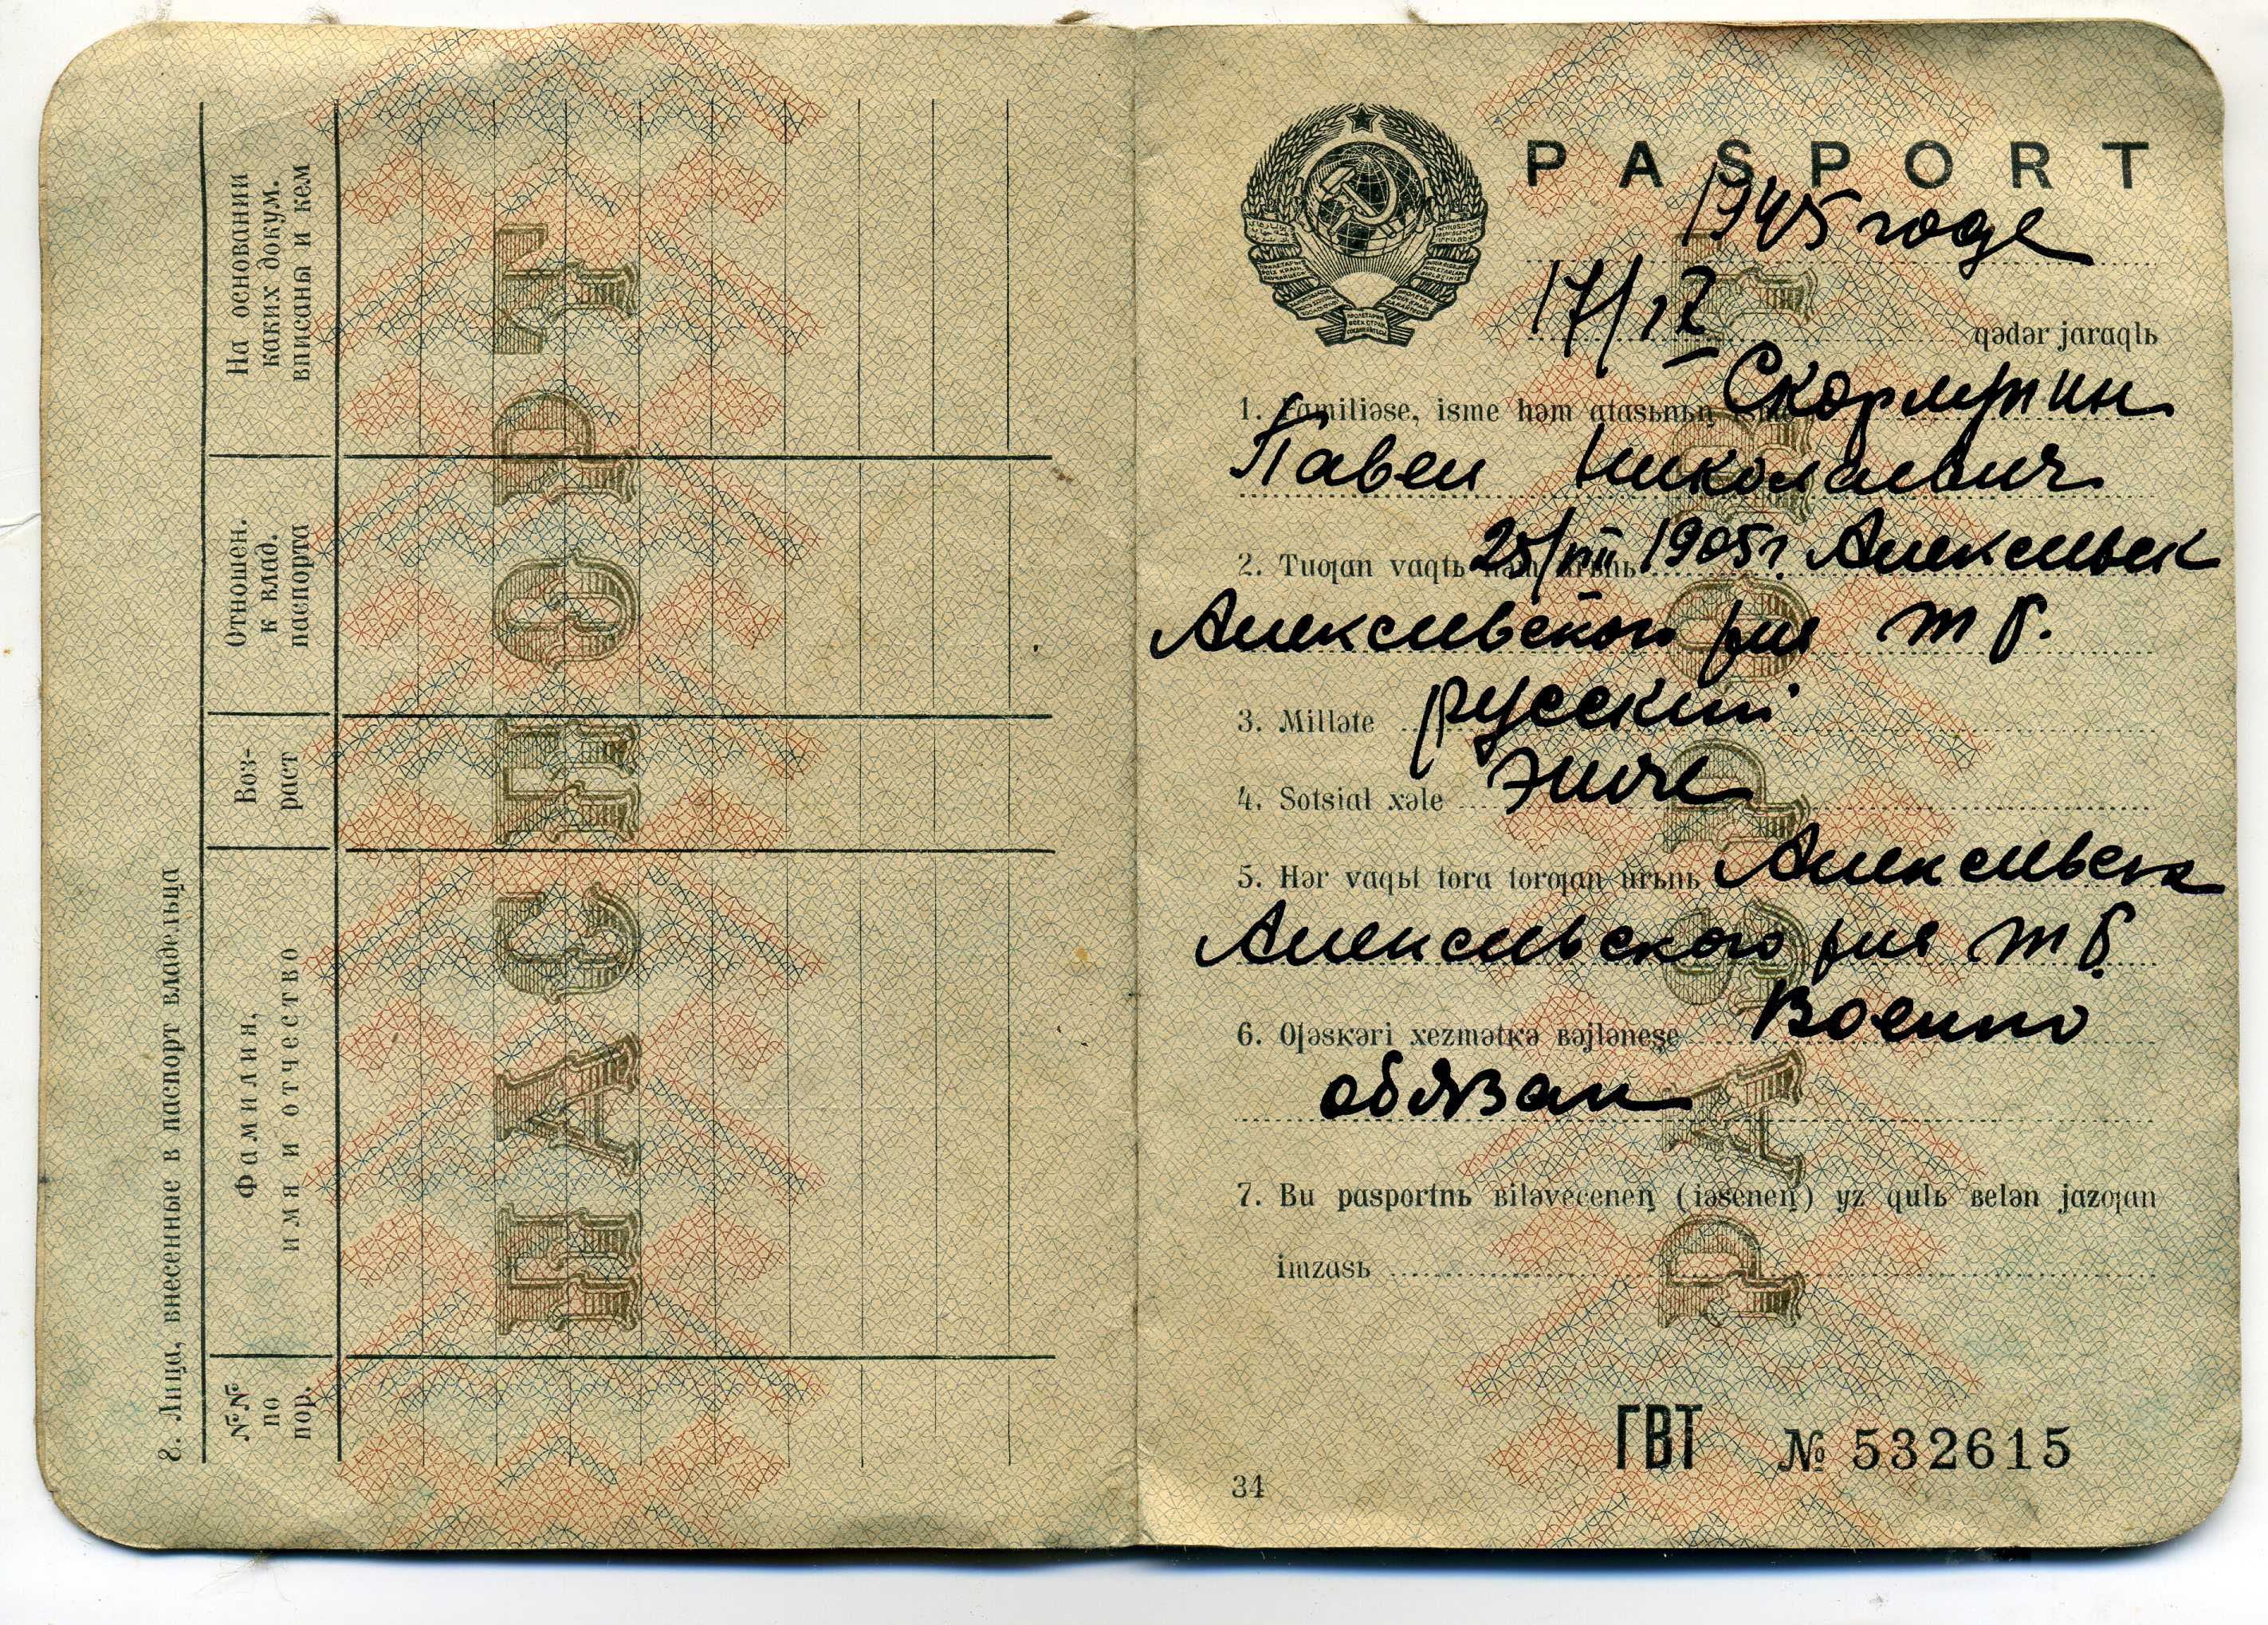 8. Лица, внесенные в паспорт владельца
№№ по пор.
Фамилия, имя и отчество
Воз-раст
Отношен. к влад. паспорта
На основании каких докум. вписаны и кем
ПАСПОРТ
PASPORT
1945 годе
17/IX
qədər jaraqlь
1. Familiəse, isme həm atasьnьꞑ isme
Павел Николаевич
2. Tuƣan vaqtь həm urьnь 25/VIII 1905 г. Алексеевск
Алексеевского р-на ТР.
3. Milləte русский
4. Sotsial xəle
5. Hər vaqьt tora torƣan urьnь Алексеевск
Алексеевского р-на ТР.
6. Oƣəskəri xezmətkə вəjləneşe Военно
обязан
7. Bu pasportnь вiləveceneꞑ (iəseneꞑ) yz qulь вelən jazƣan
imzasь
ГВТ № 532615
34
ПАСПОРТ